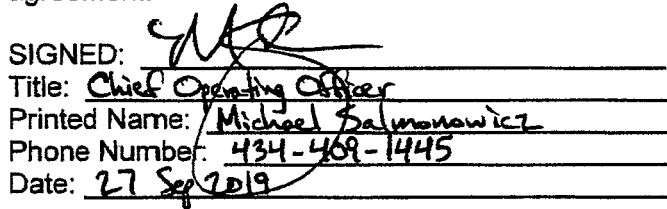 SIGNED:
Title: Chief Operating Officer
Printed Name: Michael Salmonowicz
Phone Number: 434-409-1445
Date: 27 Sep 2019